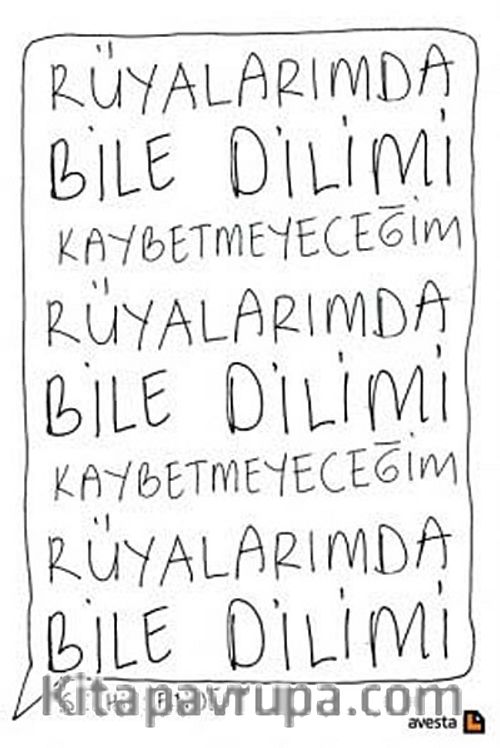 RÜYALARIMDA
BİLE DİLİMİ
KAYBETMEYECEĞİM
RÜYALARIMDA
BİLE DİLİMİ
KAYBETMEYECEĞİM
RÜYALARIMDA
BİLE DİLİMİ
Kitapavrupa.com
avesta